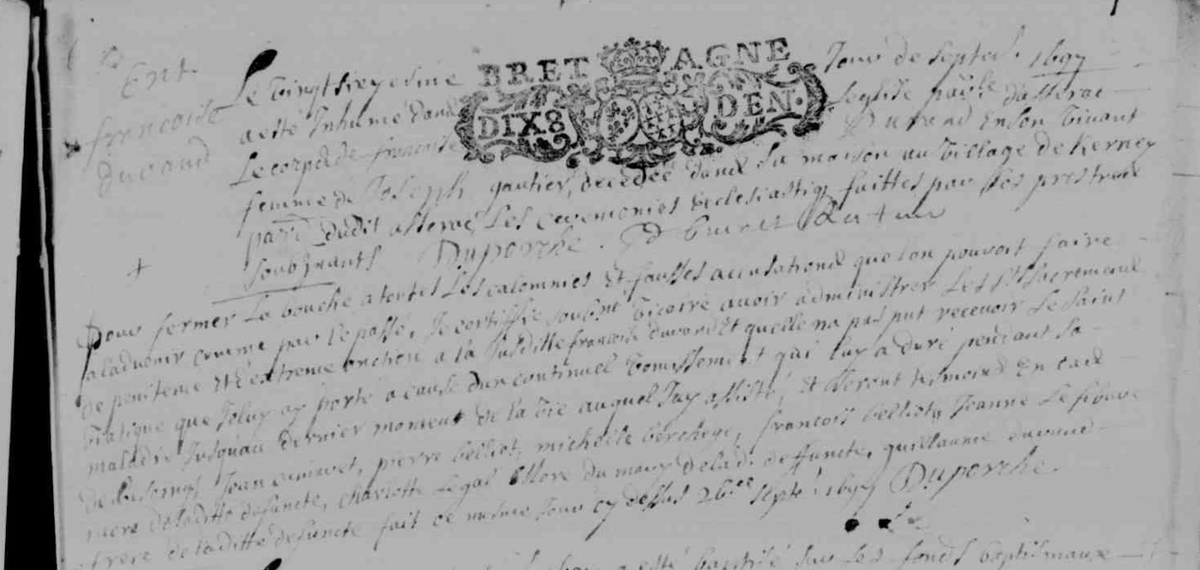 Ent.
francoise
durand
BRET AGNE
DIX 8 DEN.
Le vingt sixyesme Jour de septeb. 1697
a esté Inhumé dans leglise paroisse dasserac
Le corps de francoise Durand En son vivant
femme de Joseph gautier, decedée dans sa maison au village de Kerney
par. dudit asserac Les ceremonies Ecclesiastiq faittes par Les prestres
soubsnants Duporche.
+
Pour fermer La bouche a toutes Les calomnies Et fausses accusations que lon pouvoit faire
a laduenir comme par le passé, Je certiffie soubsnt vicaire avoir administrer Les Sts Sacremens
de penitence Et l'extreme onction a la susditte francoise durand Et quelle na pas put recevoir Le saint
viatique que Je luy ay porté a cause dun continuel vomissement qui luy a duré pendant sa
maladie Jusquau dernier moment de la vie auquel Jay assisté, Et seront tesmoins En cas
de besoing, Jean eminet, pierre belliot, michelle berchege, francois belliot, Jeanne Le febvre
mere de laditte defuncte, charlotte Legal mere du mary de lad. deffuncte, guillaume durand
frere de laditte defuncte fait ce mesme Jour cy dessus 26me septe. 1697 Duporche
a esté baptisé sur les fonds baptismaux